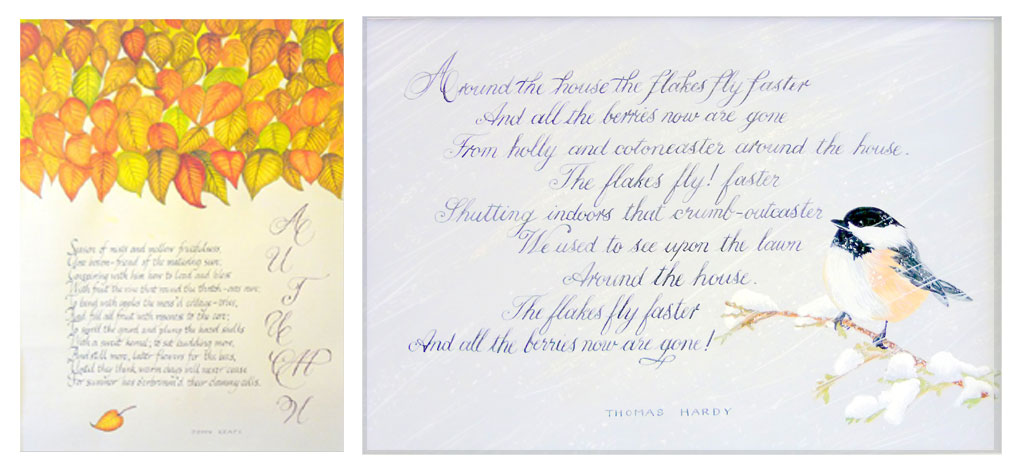 Season of mists and mellow fruitfulness.
Close bosom-friend of the maturing sun;
Conspiring with him how to load and bless
With fruit the vine that round the thatch-eves run;
To bend with apples the moss'd cottage-trees,
And fill all fruit with ripeness to the core;
To swell the gourd and plump the hazel shells
With a sweet kernel; to set budding more,
And still more, later flowers for the bees,
Until they think warm days will never cease
For summer has o'erbrimm'd their clammy cells.
AUTUMN
JOHN KEATS
Around the house the flakes fly faster
And all the berries now are gone
From holly and cotoneaster around the house.
The flakes fly! faster
Shutting indoors that crumb-outcaster
We used to see upon the lawn
Around the house.
The flakes fly faster
And all the berries now are gone!
THOMAS HARDY